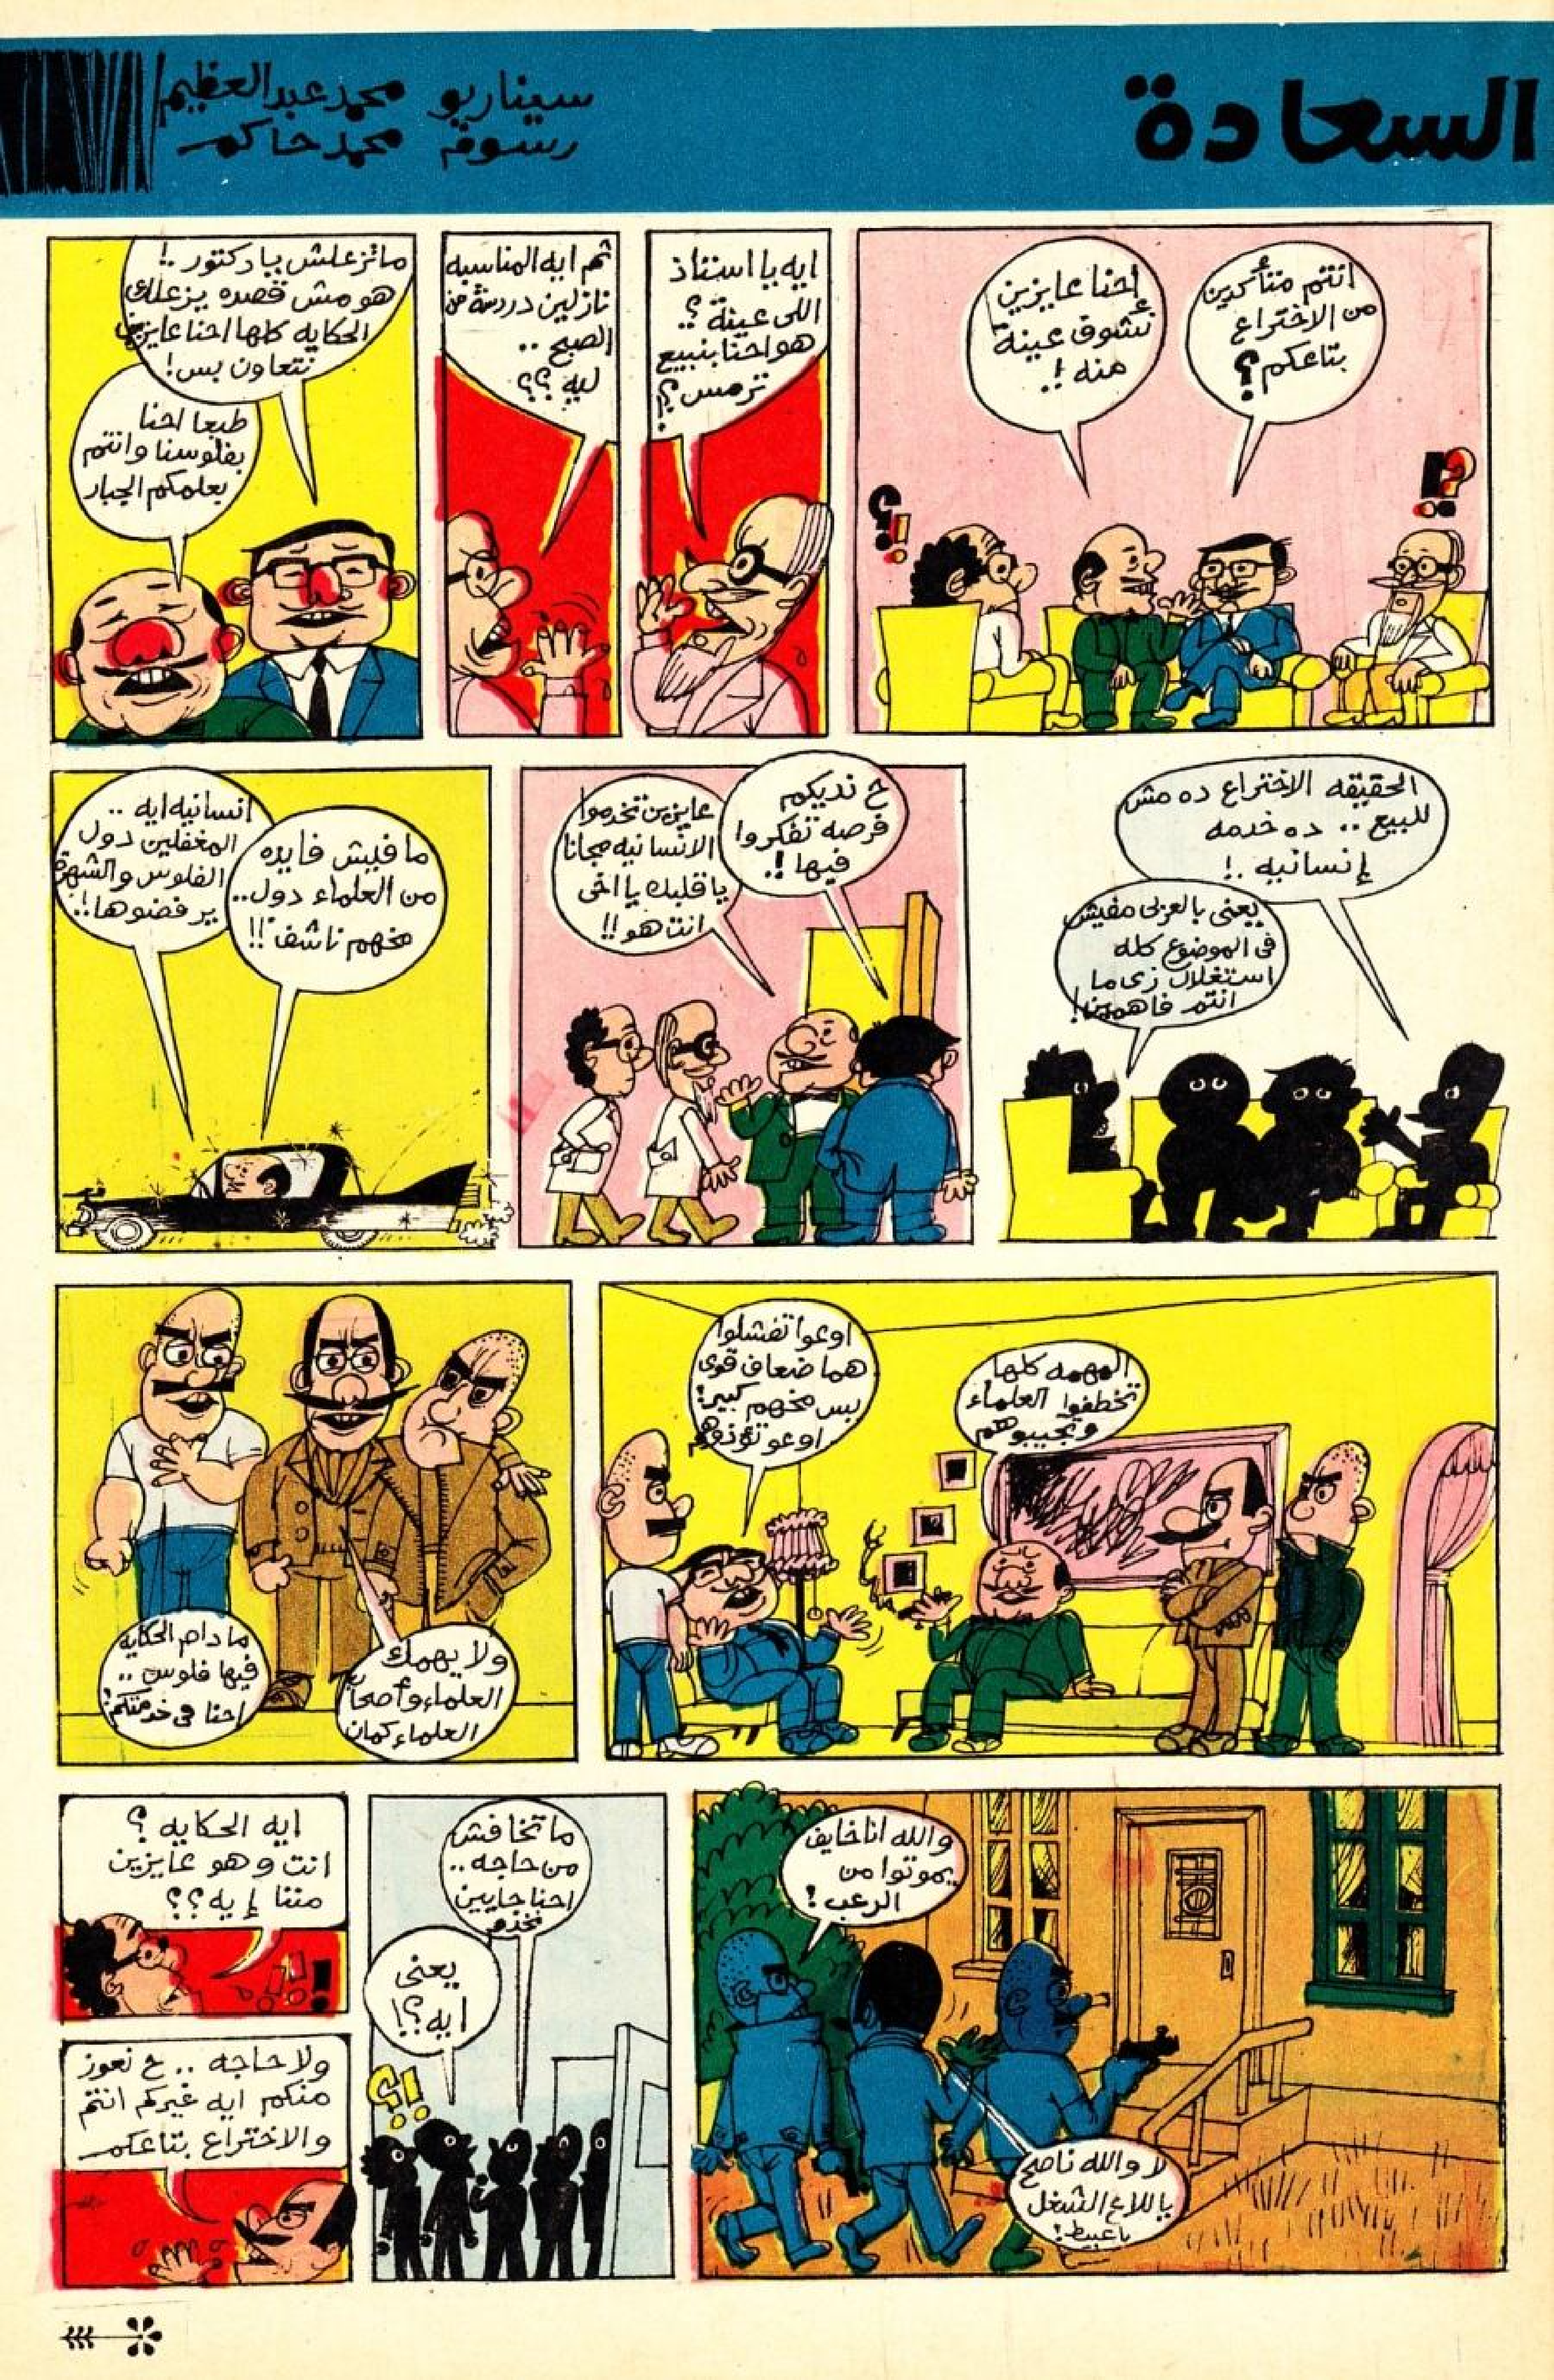 السعادة
سيناريو محمد عبد العظيم
رسوم محمد حاكم
انتم متأكدين
من الاختراع
بتاعكم؟
احنا عايزين
نشوف عينة
منه!.
ايه يا استاذ
اللى عينة؟
هو احنا بنبيع
ترمس؟
ثم ايه المناسبه
نازلين دردشة من
الصبح ..
ليه؟؟
ماتزعلش يا دكتور ..!
هو مش قصده يزعلك
الحكايه كلها احنا عايزين
نتعاون بس!
طبعا احنا
بفلوسنا وانتم
بعلمكم الجبار
الحقيقه الاختراع ده مش
للبيع .. ده خدمه
إنسانيه .!
يعنى بالعربى مفيش
فى الموضوع كله
استغلال زى ما
انتم فاهمين!
ح نديكم
فرصه تفكروا
فيها!.
عايزين تخدموا
الانسانيه مجانا
يا قلبك يا اخى
انت هو!!
ما فيش فايده
من العلماء دول..
مخهم ناشف!!
انسانيه ايه ..
المغفلين دول
الفلوس والشهرة
يرفضوها!!
المهمه كلها
تخطفوا العلماء
وتجيبوهم
اوعوا تفشلوا
هما ضعاف قوى
بس مخهم كبير!
اوعو تؤذوهم
ولا يهمك
العلماء وأصحاب
العلماء كمان
ما دام الحكايه
فيها فلوس ..
احنا فى خدمتكم!
والله انا خايف
يموتوا من
الرعب!
لا والله ناصح
يا للا ع الشغل
يا عبيط!
ما تخافش
من حاجه ..
احنا جايين
نخدم
يعنى
ايه؟!
ايه الحكايه؟
انت وهو عايزين
مننا إيه؟؟
ولا حاجه .. ح نعوز
منكم ايه غيركم انتم
والاختراع بتاعكم